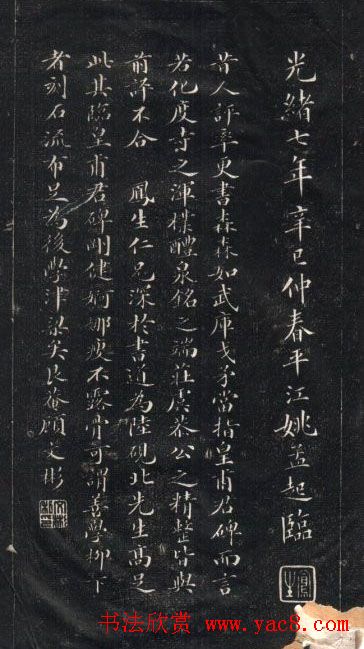 光緒七年辛巳仲春平江姚孟起臨
鳳生
昔人評率更書森森如武庫戈矛當指皇甫君碑而言
若化度寺之渾樸醴泉銘之端莊虞恭公之精整皆與
前評不合 鳳生仁兄深於書道為陸硯北先生高足
此其臨皇甫君碑剛健婀娜瘦不露骨可謂善學柳下
者刻石流布足為後學津梁矣艮菴顧文彬
书法欣赏 www.yac8.com